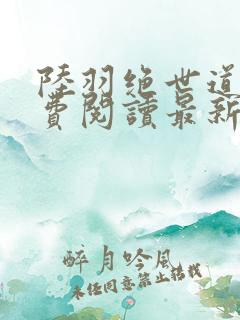 陸羽绝世道
費閱讀最新
醉月吟風
未经同意禁止转载